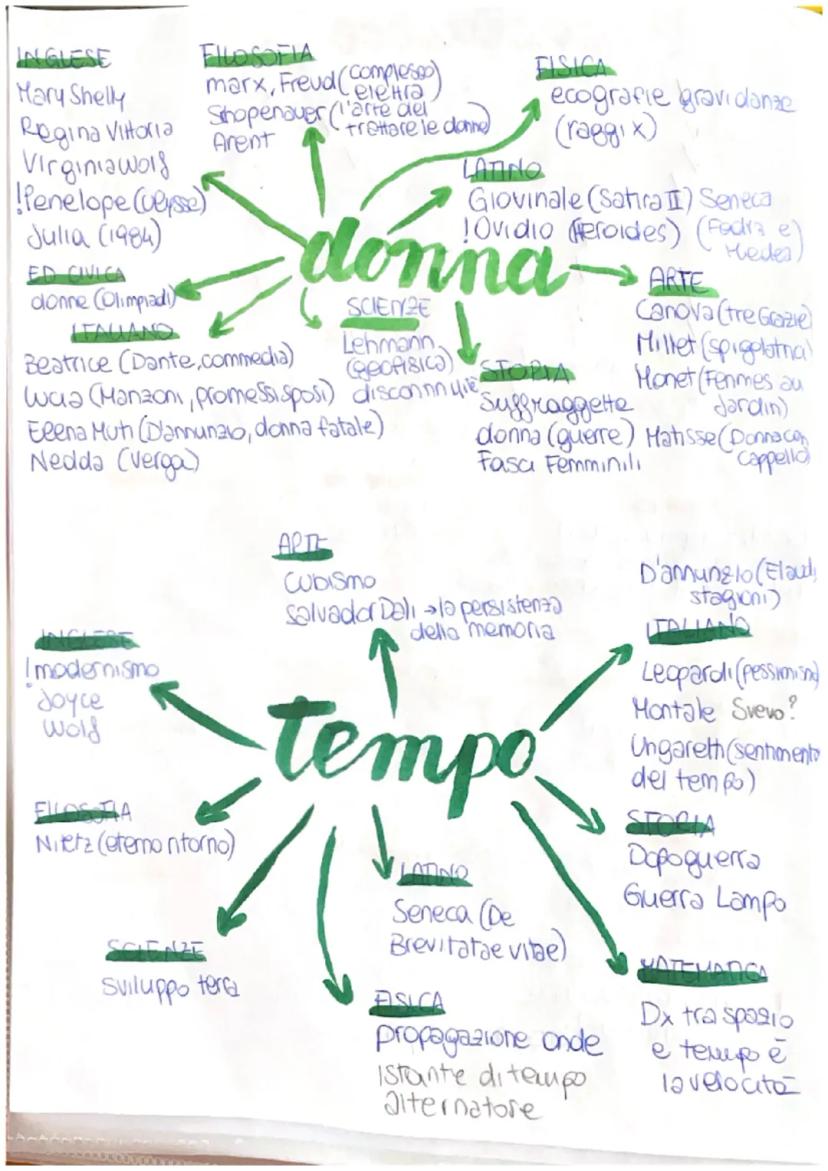 INGLESE
Mary Shelly
Regina Vittoria
Virginia Wolf
!Penelope (Ulysse)
Julia (1984)
FILOSOFIA
marx, Freud (complesso elettra)
Shopenauer (l'arte del trattare le donne)
Arent
FISICA
ecografie gravidanze
(raggi x)
LATINO
Giovinale (Satira II) Seneca
!Ovidio (Heroides) (Fedra e Medea)
donna
ED CIVICA
donne (Olimpiadi)
ITALIANO
Beatrice (Dante, commedia)
Lucia (Manzoni, promessi sposi)
Elena Muti (D'annunzio, donna fatale)
Nedda (Verga)
SCIENZE
Lehmann
(geofisica)
STORIA
Suffraggette
donna (guerre)
Fasci Femminili
ARTE
Canova (tre Grazie)
Millet (spigolatrici)
Monet (Femmes au
Jardin)
Matisse (Donna con
cappello)
ARTE
Cubismo
Salvador Dalì → la persistenza
della memoria
INGLESE
!modernismo
Joyce
Wolf
tempo
D'annunzio (
stagioni)
ITALIANO
Leopardi (pessimismo)
Montale Svevo?
Ungaretti (sentimento
del tempo)
FILOSOFIA
Nietz (eterno ritorno)
STORIA
Dopoguerra
Guerra Lampo
LATINO
Seneca (De
Brevitatae vitae)
SCIENZE
sviluppo terra
FISICA
propagazione onde
istante di tempo
alternatore
MATEMATICA
Dx tra spazio
e tempo è
la velocità